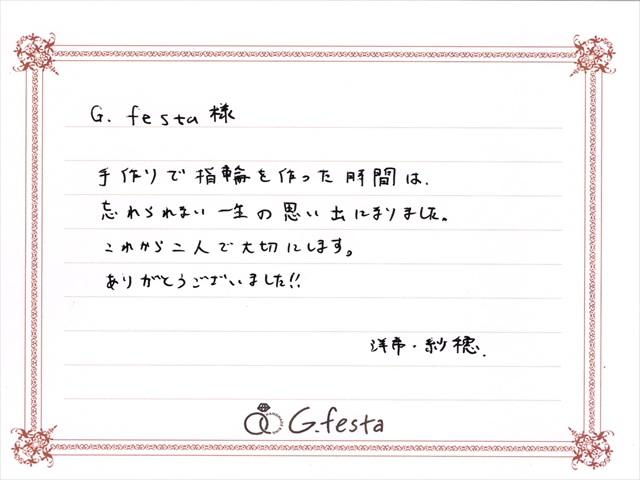 G. festa 様
手作りで指輪を作った時間は、
忘れられない一生の思い出になりました。
これから二人で大切にします。
ありがとうございました!!
洋市・紗穂.
G.festa